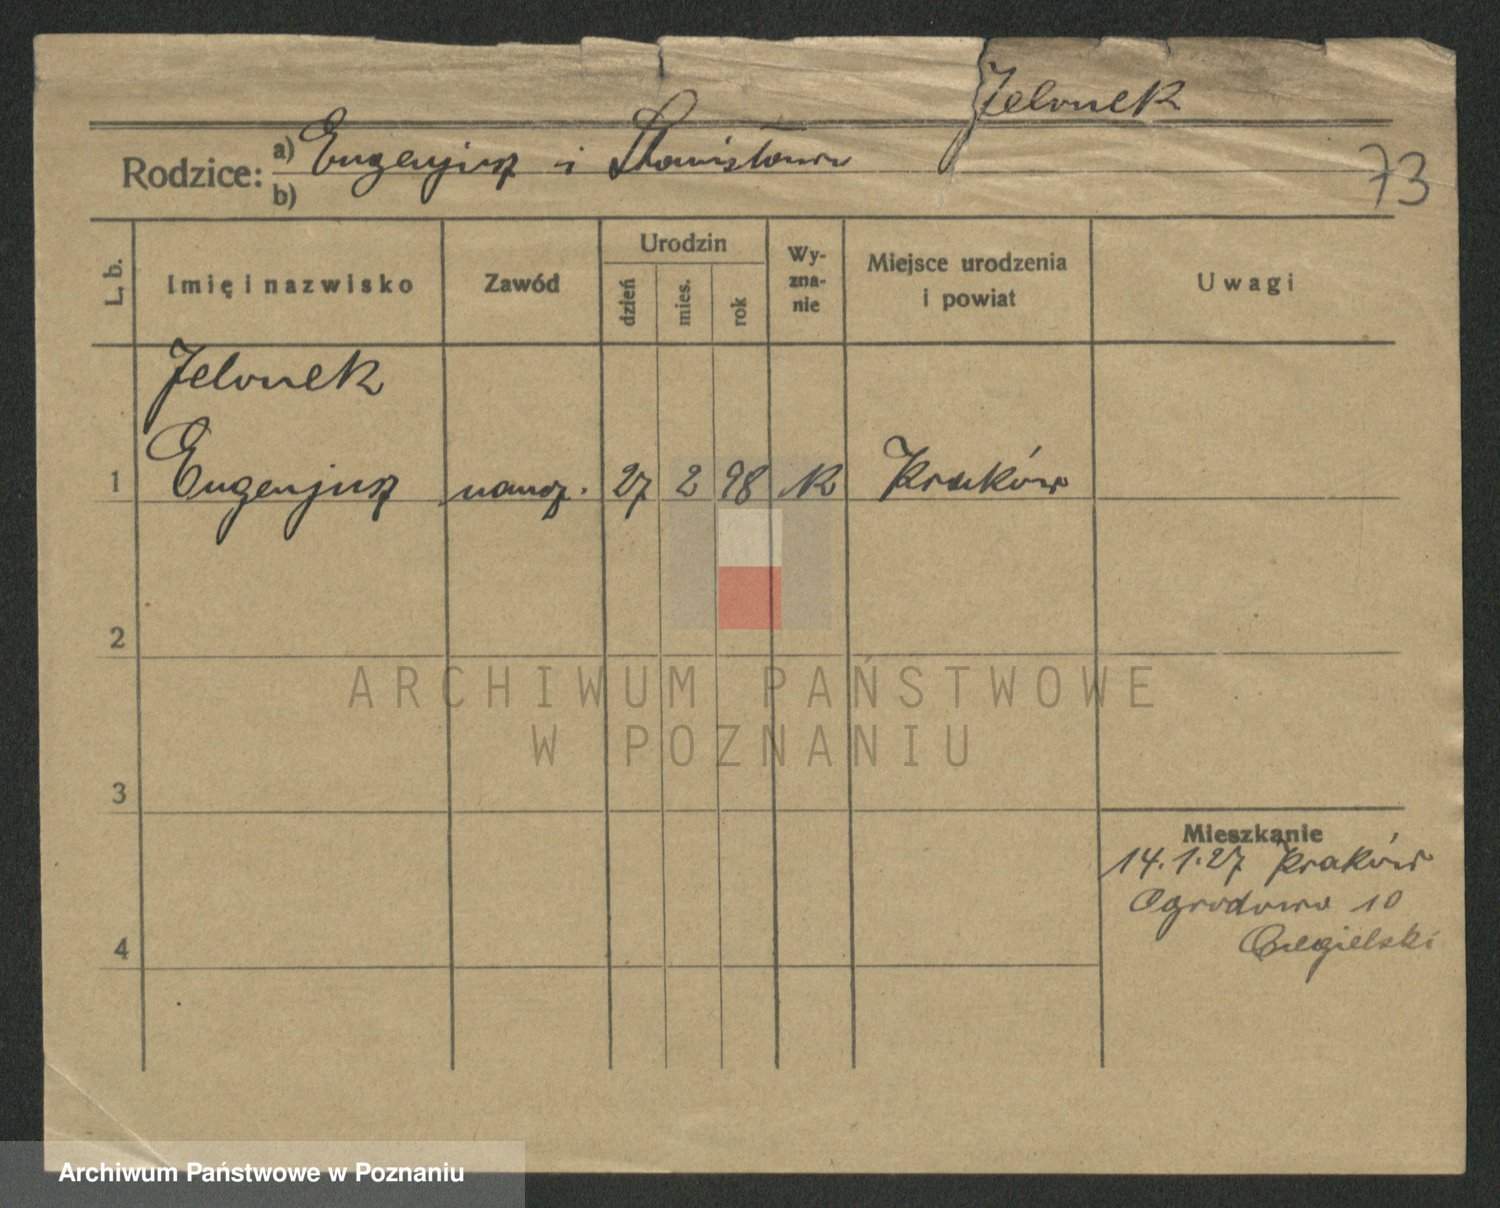 Jelonek
Rodzice: a) Eugenjusz i Stanisława
b)
73
L. b.
Imię i nazwisko
Zawód
Urodzin
dzień
mies.
rok
Wy-
zna-
nie
Miejsce urodzenia
i powiat
Uwagi
Jelonek
1 Eugenjusz naucz. 27 2 98 rk Kraków
2
ARCHIWUM PAŃSTWOWE
W POZNANIU
3
Mieszkanie
14.1.27 Kraków
Ogrodowa 10
Cegielski
4
Archiwum Państwowe w Poznaniu